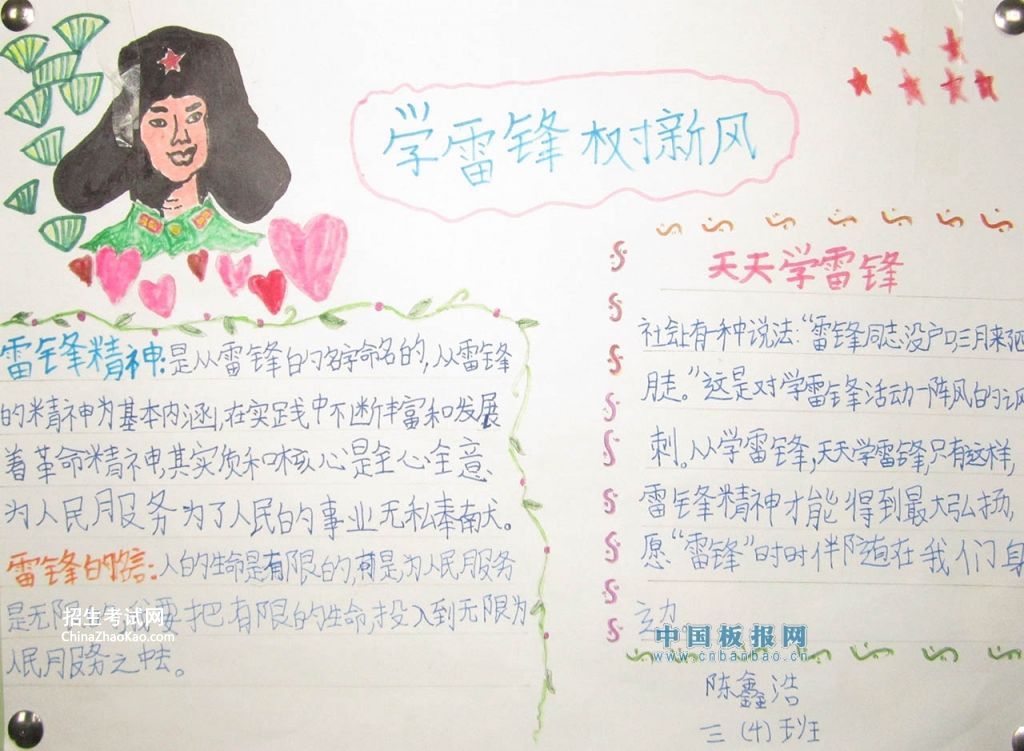 学雷锋 树新风
雷锋精神:是从雷锋的名字命名的,从雷锋
的精神为基本内涵,在实践中不断丰富和发展
着革命精神,其实质和核心是全心全意
为人民服务为了人民的事业无私奉献。
雷锋的信:人的生命是有限的,可是,为人民服务
是无限 要把有限的生命,投入到无限为
人民服务之中去。
天天学雷锋
社会上有一种说法:“雷锋同志没户口,三月来四
月走。”这是对学雷锋活动一阵风的讽
刺。从学雷锋,天天学雷锋,只有这样,
雷锋精神才能得到最大弘扬,
愿“雷锋”时时伴随在我们身
边
陈鑫浩
三(4)班
招生考试网
ChinaZhaoKao.com
中国板报网
www.cnbanbao.cn